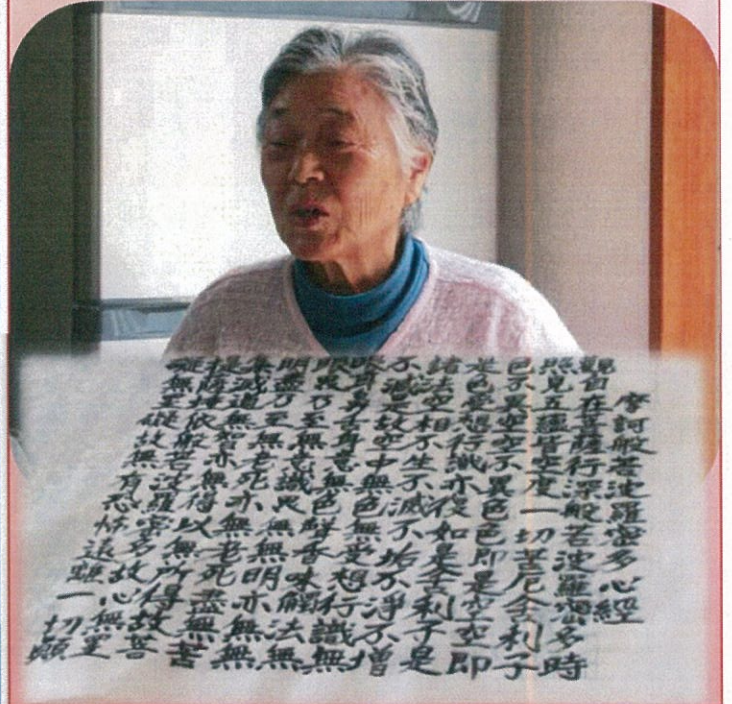 摩訶般若波羅蜜多心經
觀自在菩薩行深般若波羅蜜多時
照見五蘊皆空度一切苦厄舍利子
色不異空空不異色色即是空空即
是色受想行識亦復如是舍利子是
諸法空相不生不滅不垢不淨不增
不減是故空中無色無受想行識無
眼耳鼻舌身意無色聲香味觸法無
眼界乃至無意識界無無明亦無無
明盡乃至無老死亦無老死盡無苦
集滅道無智亦無得以無所得故菩
提薩埵依般若波羅蜜多故心無罣
礙無罣礙故無有恐怖遠離一切顚